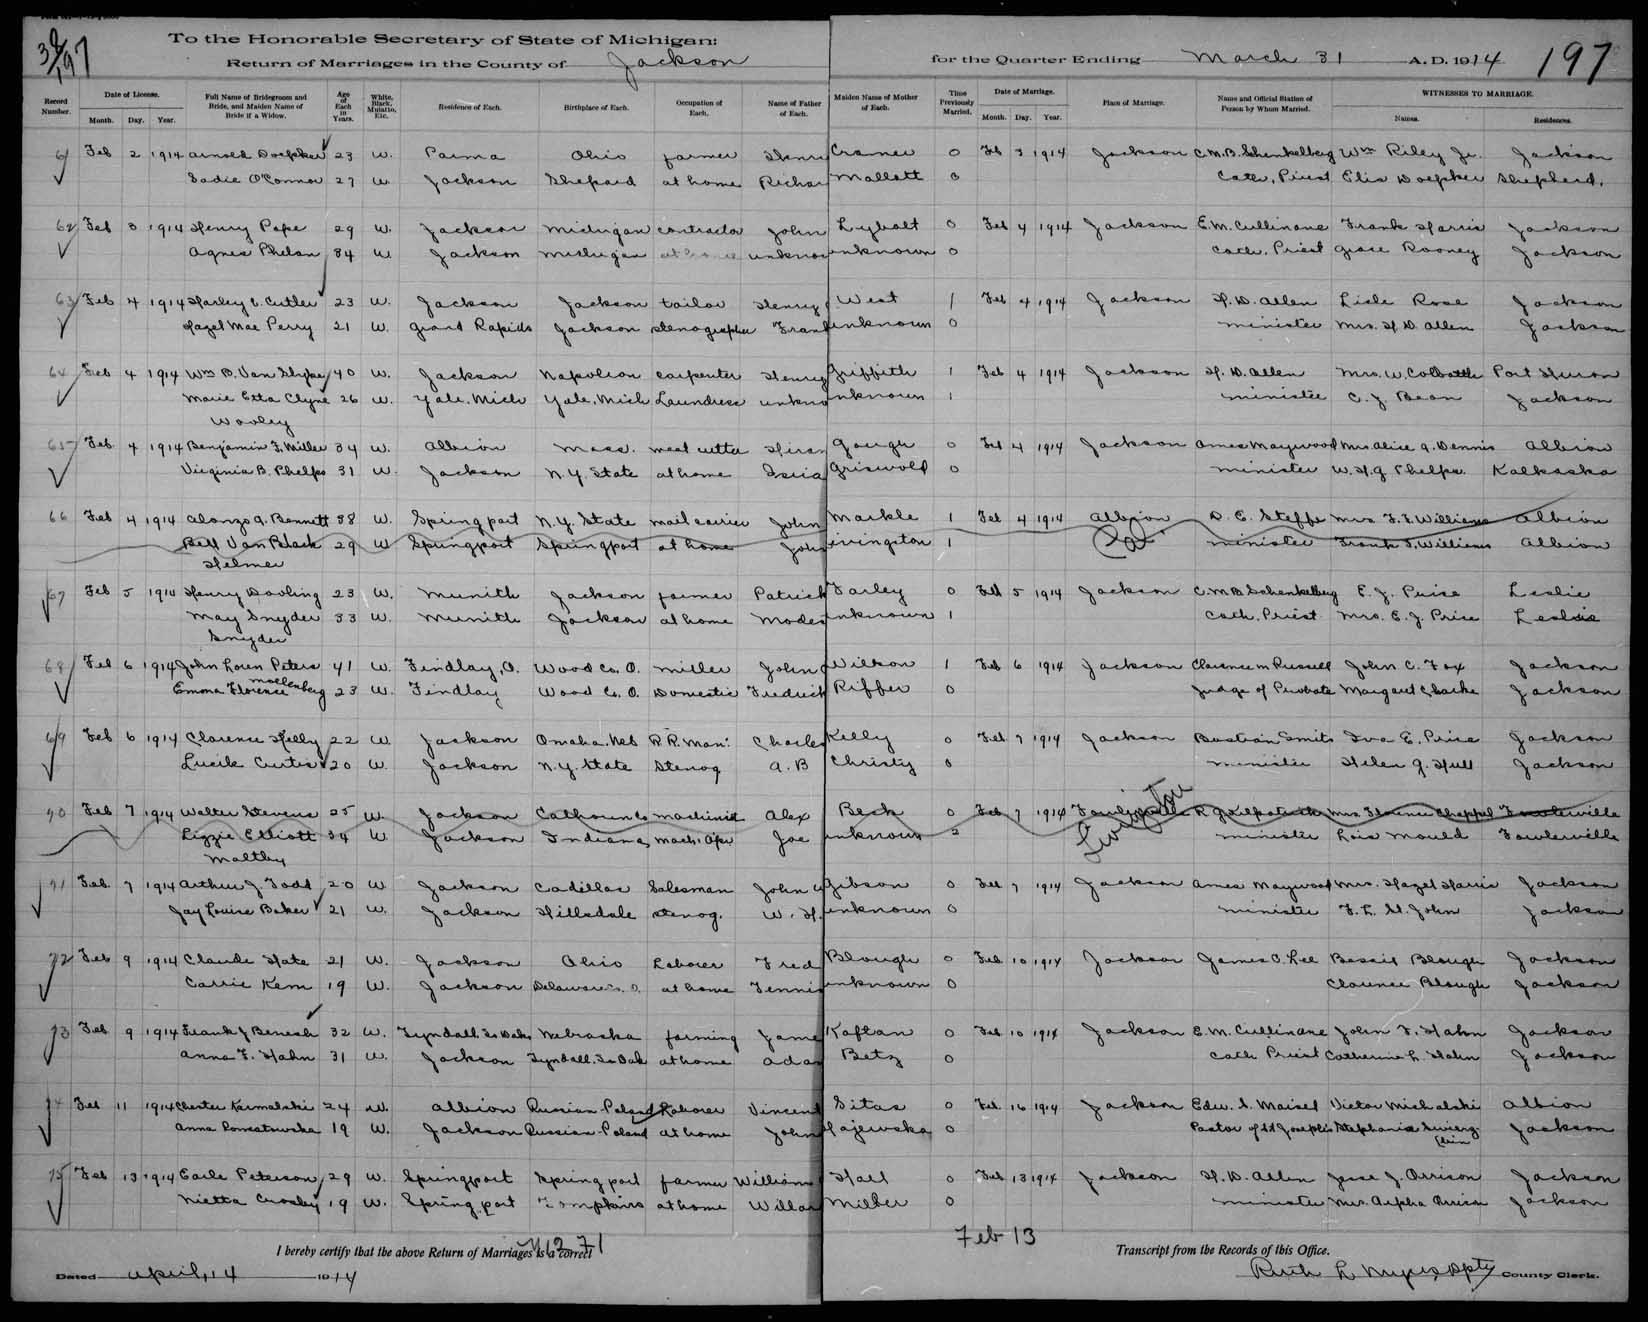 To the Honorable Secretary of State of Michigan:
Return of Marriages in the County of Jackson for the Quarter Ending March 31 A. D. 1914 197
Record Number. Date of License. Month. Day. Year. Full Name of Bridegroom and Bride, and Maiden Name of Bride if a Widow. Age of Each in Years. White, Black, Mulatto, Etc. Residence of Each. Birthplace of Each. Occupation of Each. Name of Father of Each. Maiden Name of Mother of Each. Time Previously Married. Date of Marriage. Month. Day. Year. Place of Marriage. Name and Official Station of Person by Whom Married. WITNESSES TO MARRIAGE. Names. Residences.
61 Feb 2 1914 Arnold Doepker 23 W. Parma Ohio farmer Henri Cramer 0 Feb 3 1914 Jackson C.M.B. Schenkelberg Wm Riley Jr. Jackson
Sadie O'Connor 27 W. Jackson Shepard at home Richar Mallott 0 Cath. Priest Elis Doepker Shepherd.
62 Feb 3 1914 Henry Pape 29 W. Jackson Michigan contractor John Lybolt 0 Feb 4 1914 Jackson E.M. Cullinane Frank Harris Jackson
Agnes Phelan 34 W Jackson Michigan at home unknow unknown 0 Cath. Priest Grace Rooney Jackson
63 Feb 4 1914 Harley C. Cutler 23 W. Jackson Jackson tailor Henry West 1 Feb 4 1914 Jackson H. D. Allen Lisle Rose Jackson
Hazel Mae Perry 21 W. Grand Rapids Jackson stenographer Frank unknown 0 minister Mrs. H. D. Allen Jackson
64 Feb 4 1914 Wm B. Van Slyke 40 W. Jackson Napoleon carpenter Henry Griffith 1 Feb 4 1914 Jackson H. D. Allen Mrs. W. Port Huron
Marie Etta Clyne 26 W. Yale, Mich Yale, Mich Laundress unkno unknown 1 minister C. J. Bean Jackson
Wooley
65 Feb 4 1914 Benjamin F. Miller 34 W. Albion Mass. meat cutter Hiram Gough 0 Feb 4 1914 Jackson Ames Maywood Mrs Alice A. Dennis Albion
Virginia B. Phelps 31 W. Jackson N.Y. State at home Griswold 0 minister W. H. G Phelps Kalkaska
66 Feb 4 1914 Alonzo A. Bennett 38 W. Springport N.Y. State mail carrier John Markle 1 Feb 4 1914 Albion D. E. Steffe Mrs F. F. Williams Albion
Bell Van Black 29 W Springport Springport at home John ivingston 1 Ca minister Frank F. Williams Albion
Helmer
67 Feb 5 1914 Henry Dowling 23 W. Munith Jackson farmer Patrick Farley 0 Feb 5 1914 Jackson C.M.B Schenkelberg E. J. Price Leslie
May Snyder 33 W. Munith Jackson at home Modes unknown 1 Cath. Priest Mrs. E. J. Price Leslie
Snyder
68 Feb 6 1914 John Loren Peters 41 W. Findlay, O. Wood Co. O. miller John Wilson 1 Feb 6 1914 Jackson Clarence M Russell John C. Fox Jackson
Emma Florence Mollenberg 23 W. Findlay Wood Co. O. Domestic Fredrick Riffer 0 Judge of Probate Margaret Clarke Jackson
69 Feb 6 1914 Clarence Kelly 22 W. Jackson Omaha Neb R.R. Man. Charles Kelly 0 Feb 7 1914 Jackson Bastian Smits Iva E. Price Jackson
Lucile Curtis 20 W. Jackson N.Y. State Stenog A. B Christy 0 minister Helen G. Hull Jackson
70 Feb 7 1914 Walter Stevens 25 W. Jackson Calhoun Co machinist Alex Beck 0 Feb 7 1914 Fowlerville R G Kilpatrick Mrs Florence Chappel Fowlerville
Lizzie Elliott 34 W Jackson Indiana mach. Oper Joe unknown 2 Livingston minister Lois Mould Fowlerville
Maltby
71 Feb. 7 1914 Arthur J. Todd 20 W Jackson Cadillac Salesman John W Gibson 0 Feb 7 1914 Jackson Ames Maywood Mrs. Hazel Harris Jackson
Jay Louise Baker 21 W. Jackson Hillsdale stenog. W. H. unknown 0 minister F. L. St. John Jackson
72 Feb 9 1914 Claude Hate 21 W. Jackson Ohio Laborer Fred Blough 0 Feb 10 1914 Jackson James O. Lee Bessie Blough Jackson
Carrie Kern 19 W. Jackson Delaware Co. O. at home Tennis unknown 0 Clarence Blough Jackson
73 Feb 9 1914 Frank J Benesh 32 W. Tyndall So Dak Nebraska farming Jame Kaftan 0 Feb 10 1914 Jackson E.M. Cullinane John F. Hahn Jackson
Anna F. Hahn 31 W. Jackson Tyndall. So Dak at home Adam Betz 0 Cath Priest Catherine L. Hahn Jackson
74 Feb 11 1914 Chester Karmalski 24 W. Albion Russian Poland Laborer Vincent Sitas 0 Feb 16 1914 Jackson Edw. S. Maisel Victor Michalski Albion
Anna 19 W. Jackson Russian-Poland at home John ajewska 0 Pastor of St Josephs Stephania Jackson
75 Feb 13 1914 Earle Peterson 29 W. Springport Springport farmer William Hall 0 Feb 13 1914 Jackson H. D. Allen Jesse J. Orrison Jackson
Nietta Crosby 19 W. Springport Tompkins at home Willar Milber 0 minister Mrs. Alpha Orrison Jackson
I hereby certify that the above Return of Marriages is a correct Transcript from the Records of this Office.
Feb 13
Dated April 14 1914 Ruth L Myers Dpty County Clerk.